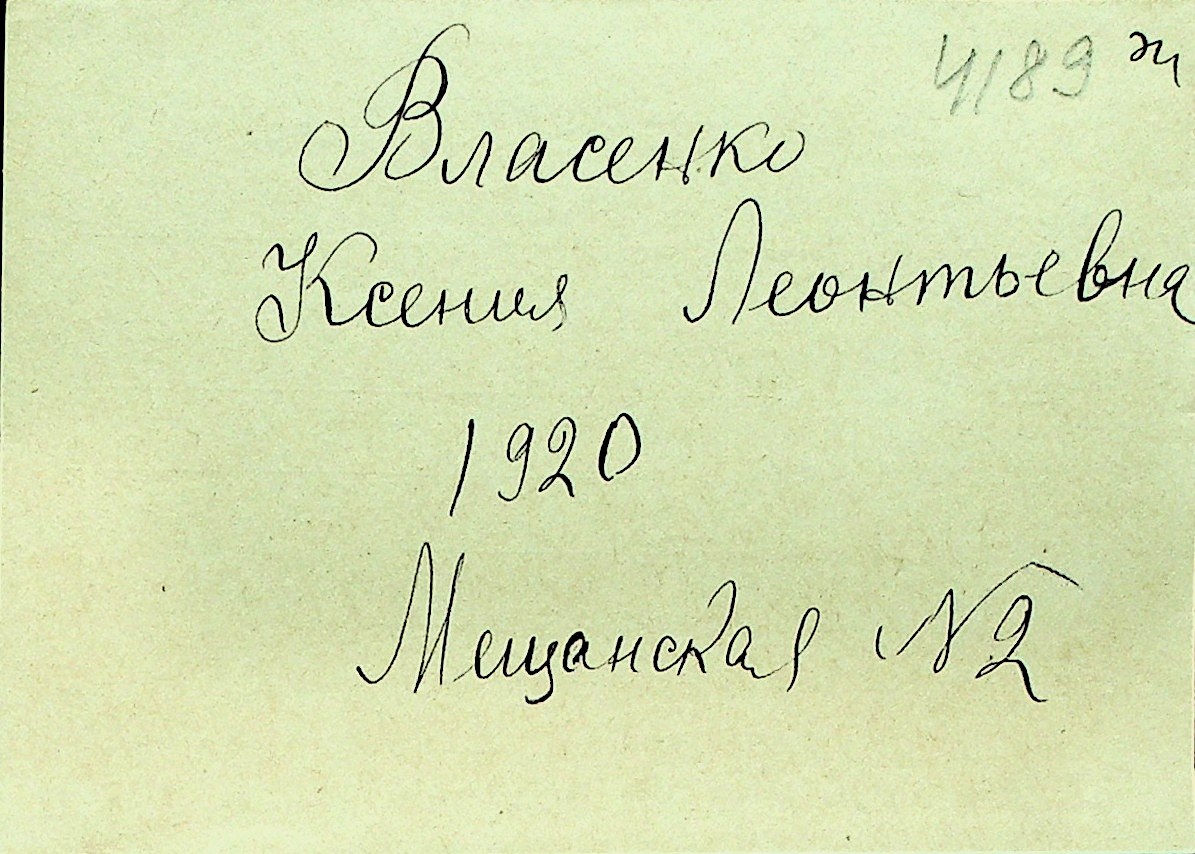 4189
Власенко
Ксения Леонтьевна
1920
Мещанская N2